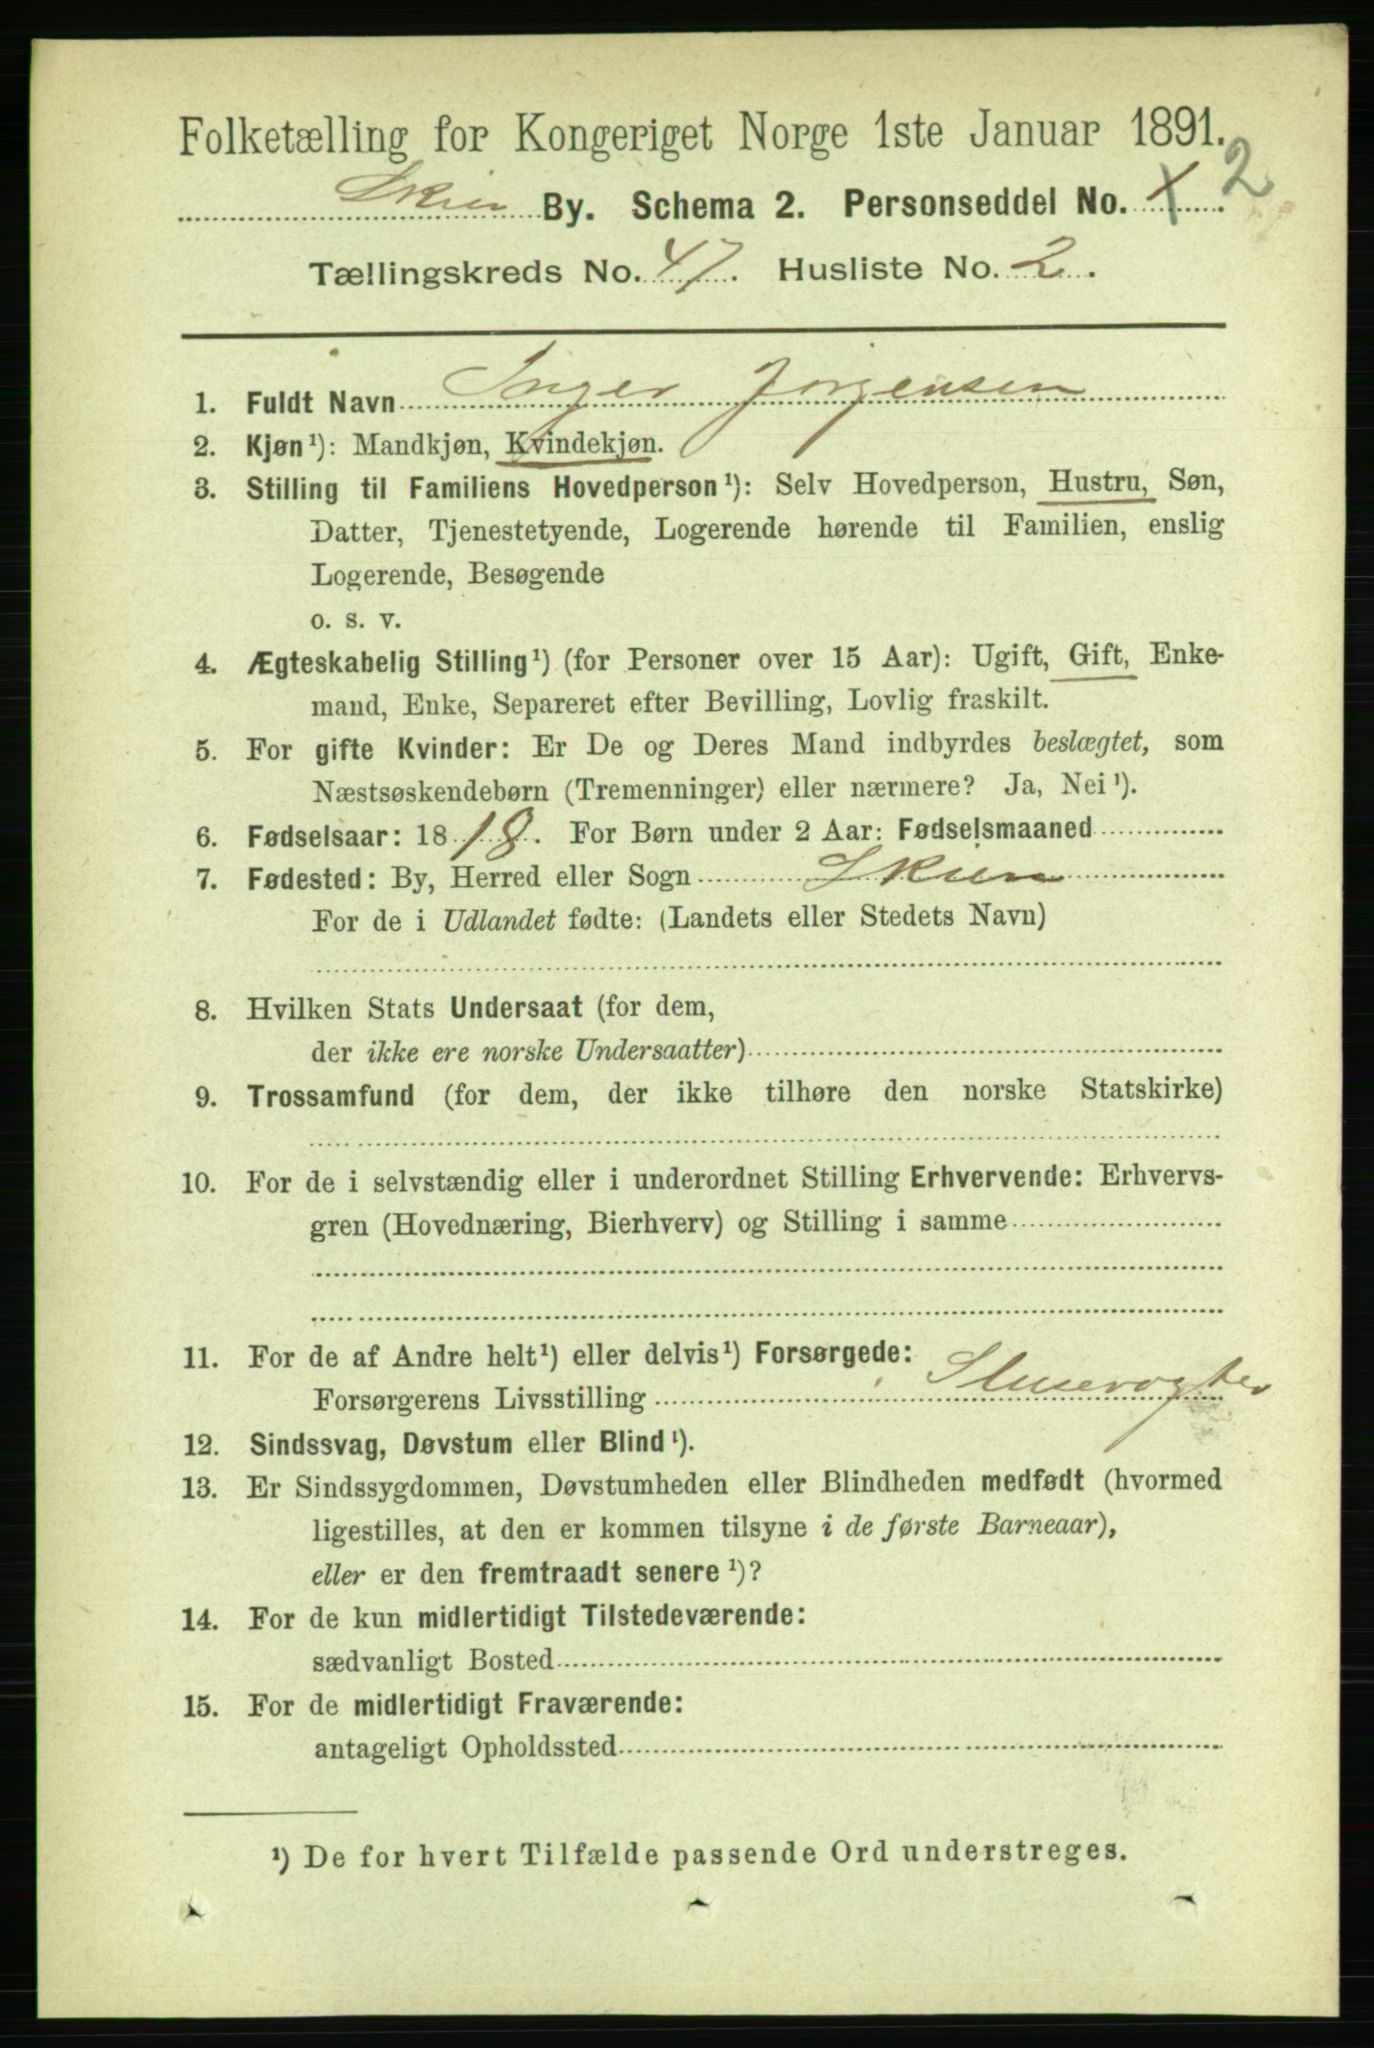 Folketælling for Kongeriget Norge 1ste Januar 1891.
Skien By. Schema 2. Personseddel No. 1 2
Tællingskreds No. 47. Husliste No. 2.
1. Fuldt Navn Inger Jørgensen
2. Kjøn¹): Mandkjøn, Kvindekjøn.
3. Stilling til Familiens Hovedperson¹): Selv Hovedperson, Hustru, Søn,
Datter, Tjenestetyende, Logerende hørende til Familien, enslig
Logerende, Besøgende
o. s. v.
4. Ægteskabelig Stilling¹) (for Personer over 15 Aar): Ugift, Gift, Enke-
mand, Enke, Separeret efter Bevilling, Lovlig fraskilt.
5. For gifte Kvinder: Er De og Deres Mand indbyrdes beslægtet, som
Næstsøskendebørn (Tremenninger) eller nærmere? Ja, Nei¹).
6. Fødselsaar: 1818. For Børn under 2 Aar: Fødselsmaaned
7. Fødested: By, Herred eller Sogn Skien
For de i Udlandet fødte: (Landets eller Stedets Navn)
8. Hvilken Stats Undersaat (for dem,
der ikke ere norske Undersaatter)
9. Trossamfund (for dem, der ikke tilhøre den norske Statskirke)
10. For de i selvstændig eller i underordnet Stilling Erhvervende: Erhvervs-
gren (Hovednæring, Bierhverv) og Stilling i samme
11. For de af Andre helt¹) eller delvis¹) Forsørgede:
Forsørgerens Livsstilling Slusevogter
12. Sindssvag, Døvstum eller Blind¹).
13. Er Sindssygdommen, Døvstumheden eller Blindheden medfødt (hvormed
ligestilles, at den er kommen tilsyne i de første Barneaar),
eller er den fremtraadt senere¹)?
14. For de kun midlertidigt Tilstedeværende:
sædvanligt Bosted
15. For de midlertidigt Fraværende:
antageligt Opholdssted
¹) De for hvert Tilfælde passende Ord understreges.